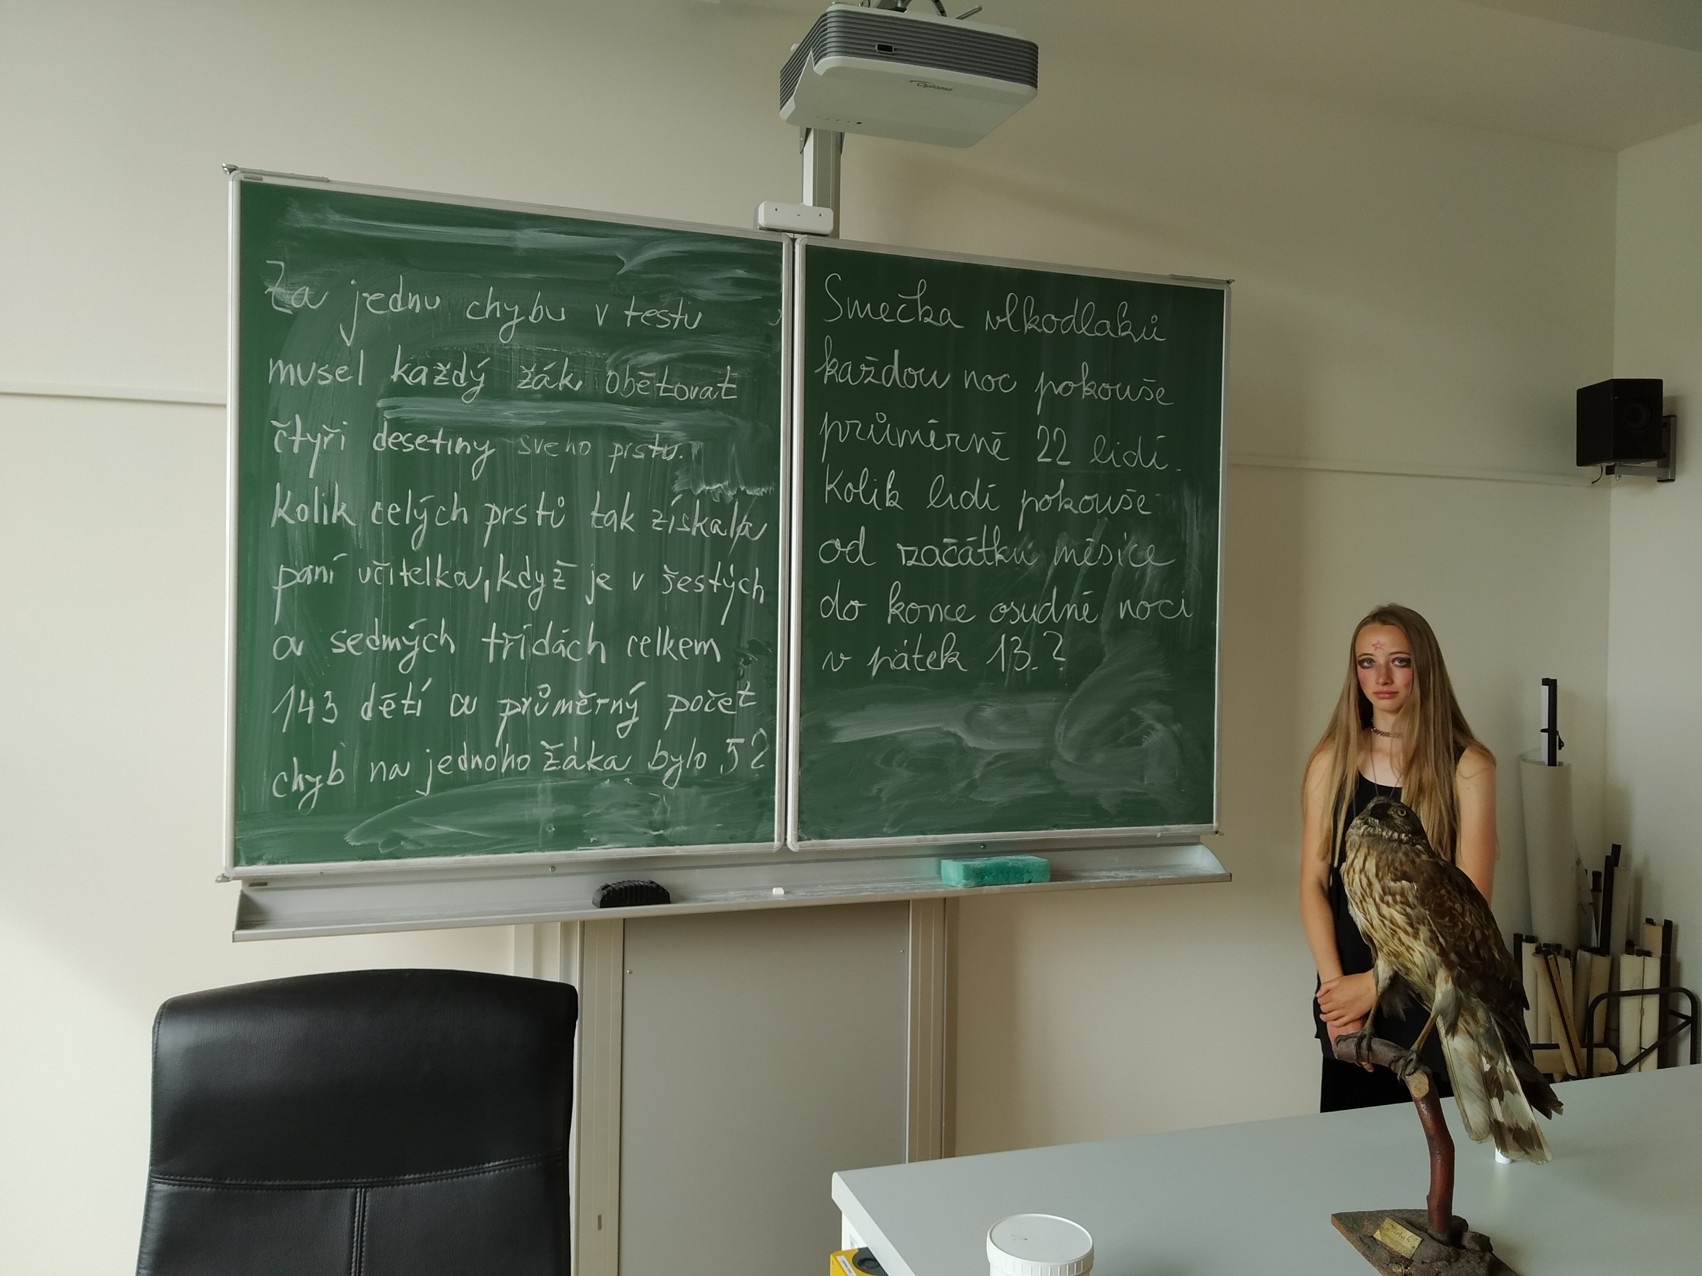 Za jednu chybu v testu
musel každý žák obětovat
čtyři desetiny sveho prstu.
Kolik celých prstů tak získala
paní učitelka, když je v šestých
a sedmých třídách celkem
143 dětí a průměrný počet
chyb na jednoho žáka bylo 52
Smečka vlkodlaků
každou noc pokouše
průměrně 22 lidí.
Kolik lidí pokouše
od začátku měsíce
do konce osudné noci
v pátek 13.?
Optoma